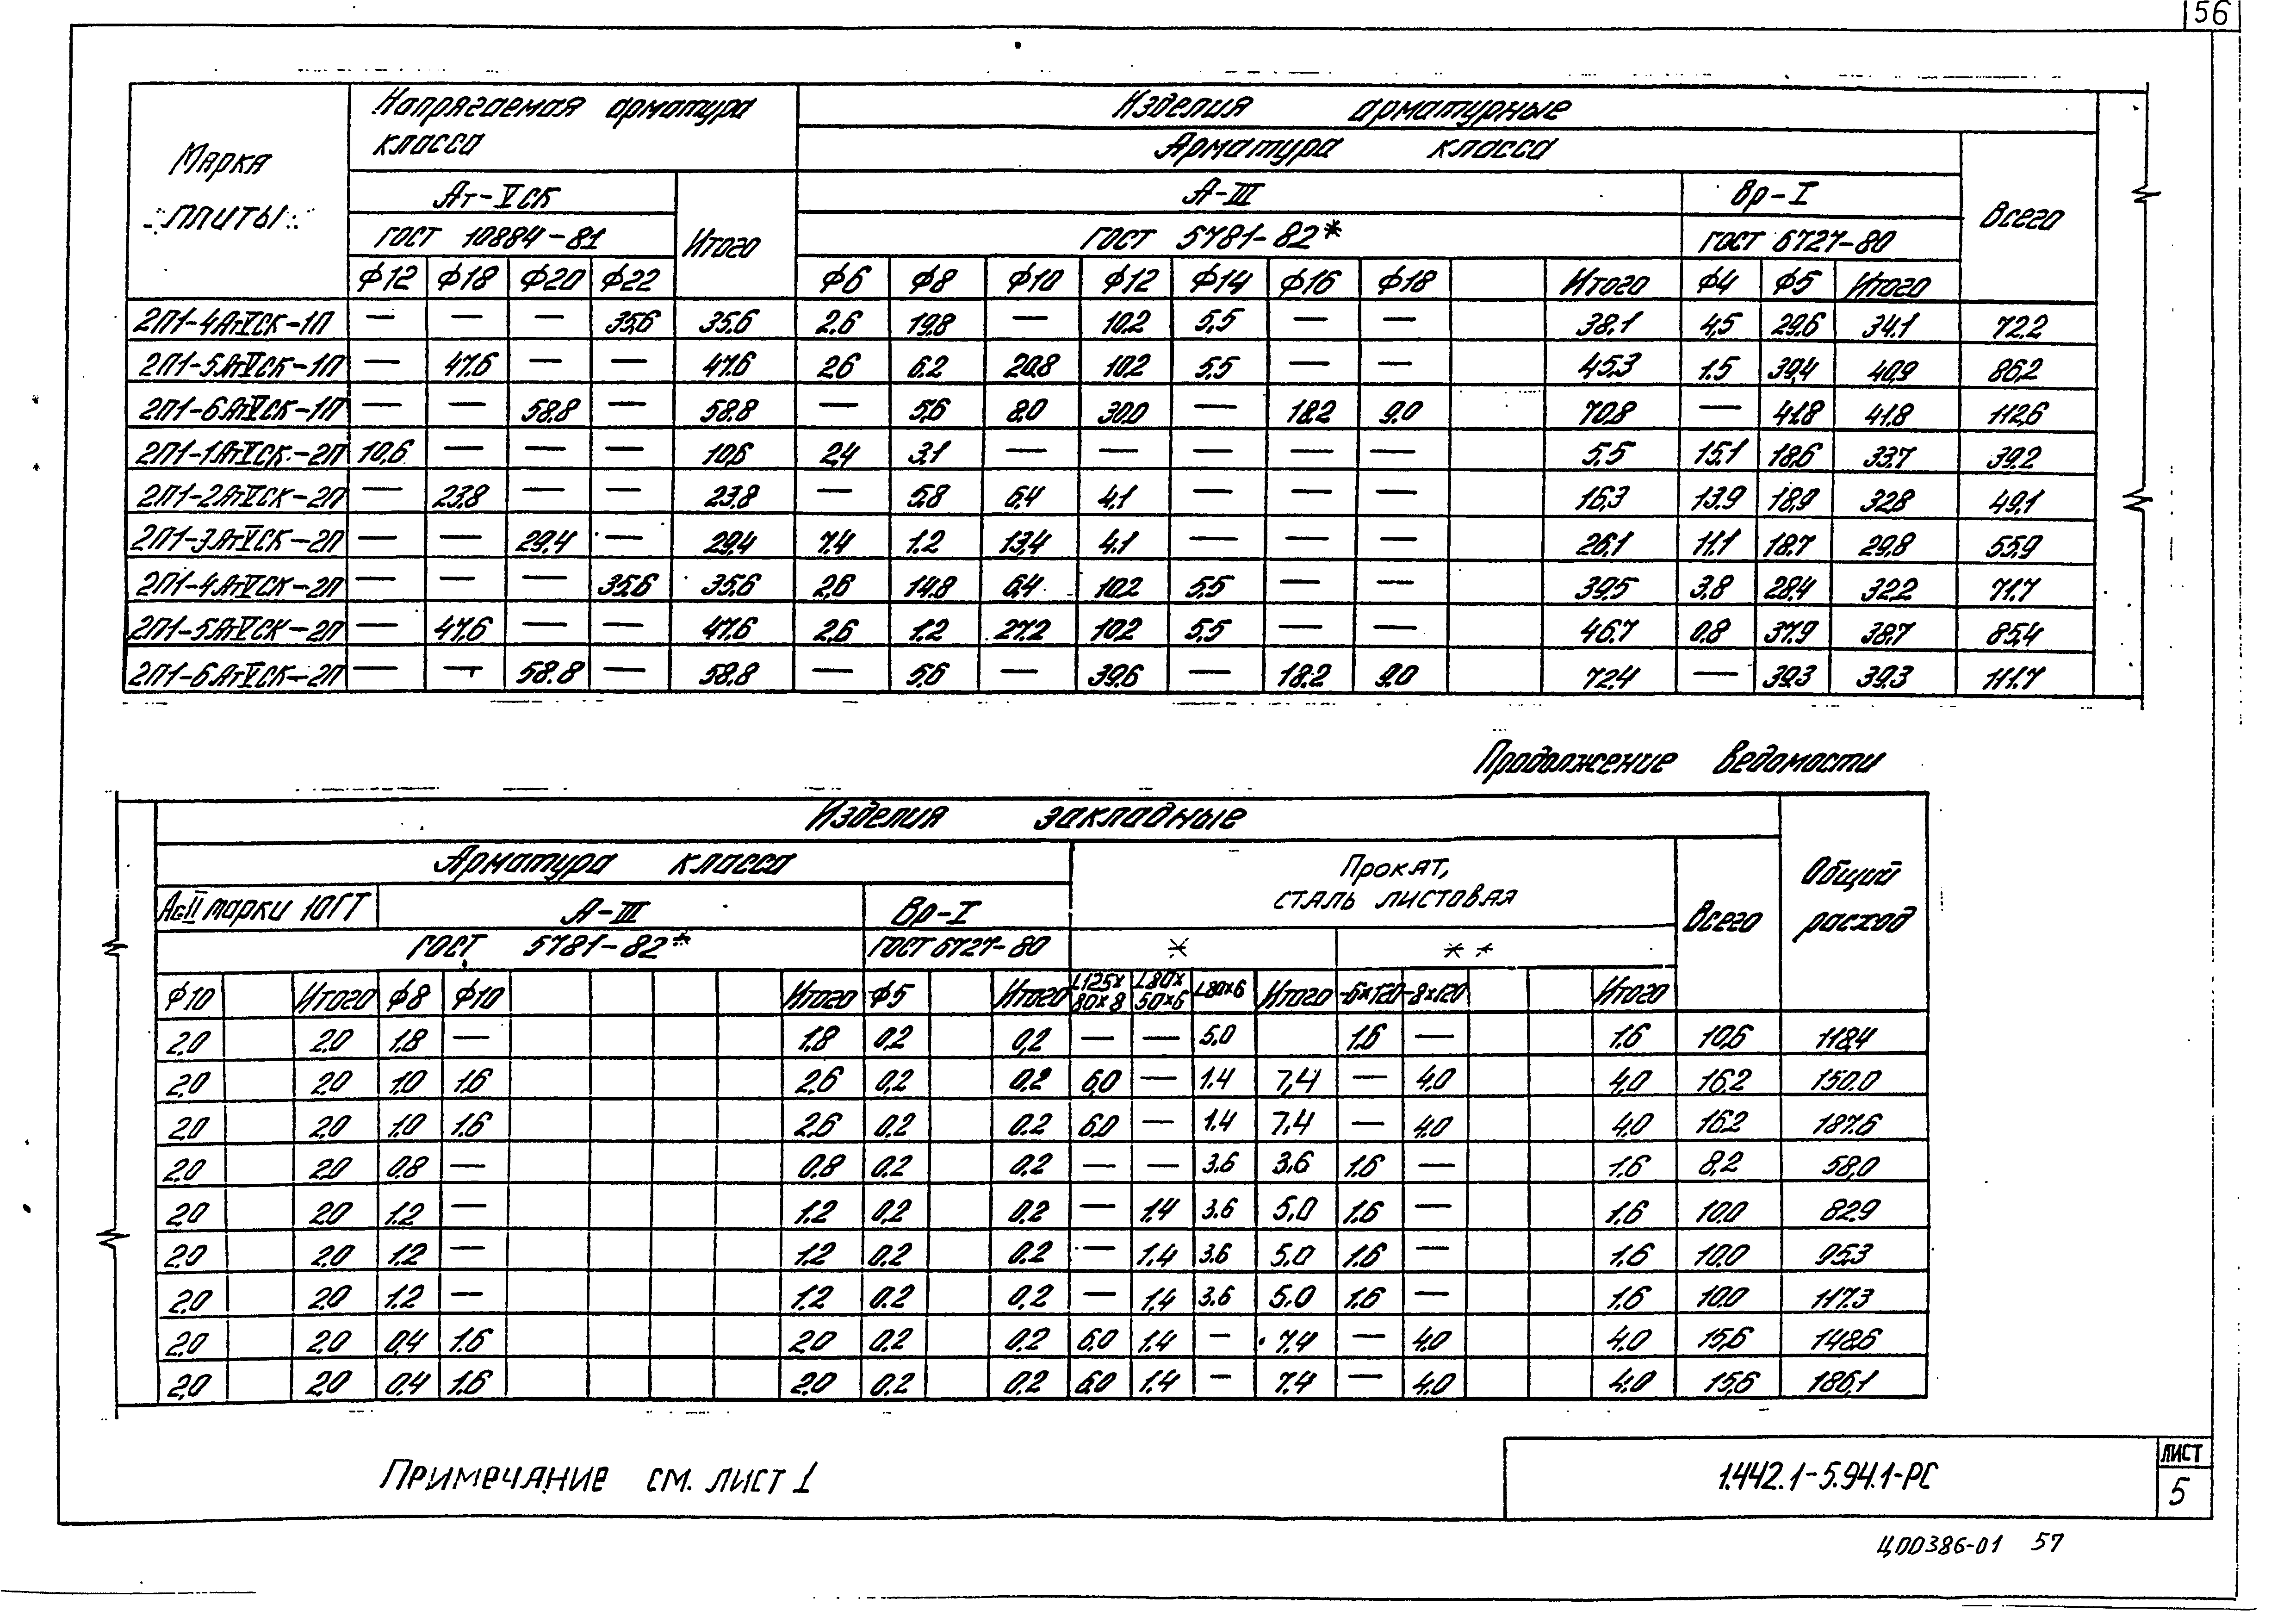 56
Марка плиты | Напрягаемая арматура класса | Изделия арматурные
Арматура класса | Всего
Ат-VСК | Итого | А-III | Вр-I
ГОСТ 10884-81 | ГОСТ 5781-82* | ГОСТ 6727-80
ф12 ф18 ф20 ф22 | ф6 ф8 ф10 ф12 ф14 ф16 ф18 Итого ф4 ф5 Итого
2П1-4АтVСК-1П — — — 35,6 35.6 2.6 19,8 — 10.2 5,5 — — 38.1 4,5 29.6 34.1 72.2
2П1-5АтVСК-1П — 47.6 — — 47.6 2.6 6.2 20.8 10.2 5,5 — — 45,3 1.5 39,4 40,9 86,2
2П1-6АтVСК-1П — — 58.8 — 58.8 — 5,6 8.0 30.0 — 18.2 9.0 70,8 — 41.8 41.8 112,6
2П1-1АтVСК-2П 10,6 — — — 10,6 2,4 3.1 — — — — — 5,5 15.1 18,6 33.7 39.2
2П1-2АтVСК-2П — 23,8 — — 23.8 — 5,8 6,4 4,1 — — — 16,3 13.9 18,9 32.8 49,1
2П1-3АтVСК-2П — — 29.4 — 29.4 7.4 1.2 13,4 4.1 — — — 26,1 11.1 18.7 29.8 55.9
2П1-4АтVСК-2П — — — 35.6 35.6 2.6 14.8 6.4 10.2 5.5 — — 39.5 3.8 28.4 32.2 71.7
2П1-5АтVСК-2П — 47,6 — — 47.6 2.6 1.2 27.2 10.2 5.5 — — 46.7 0.8 37.9 38.7 85,4
2П1-6АтVСК-2П — — 58.8 — 58.8 — 5,6 — 39,6 — 18.2 9.0 72,4 — 39.3 39.3 111.7
Продолжение ведомости
Изделия закладные | Общий расход
Арматура класса | Прокат, сталь листовая | Всего
АсII марки 10ГТ | А-III | Вр-I
ГОСТ 5781-82* | ГОСТ 6727-80 | * | **
ф10 Итого ф8 ф10 Итого ф5 Итого L125×80×8 L80×50×6 L80×6 Итого -6×120 -8×120 Итого
2.0 2.0 1.8 — 1.8 0,2 0,2 — — 5.0 1.6 — 1.6 10,6 118,4
2.0 2.0 1.0 1.6 2,6 0,2 0.2 6,0 — 1.4 7,4 — 4.0 4,0 16.2 150.0
2.0 2.0 1.0 1.6 2,6 0.2 0.2 6,0 — 1.4 7,4 — 4.0 4,0 16.2 187.6
2.0 2.0 0.8 — 0,8 0.2 0,2 — — 3.6 3.6 1.6 — 1.6 8,2 58,0
2.0 2.0 1.2 — 1.2 0,2 0,2 — 1.4 3.6 5,0 1.6 — 1,6 10.0 82,9
2.0 2.0 1.2 — 1.2 0.2 0.2 — 1,4 3.6 5.0 1.6 — 1.6 10.0 95.3
2.0 2.0 1.2 — 1.2 0.2 0,2 — 1,4 3.6 5.0 1.6 — 1.6 10.0 117.3
2.0 2.0 0,4 1.6 2.0 0.2 0,2 6,0 1.4 — 7,4 — 4.0 4.0 15,6 148.6
2.0 2.0 0.4 1.6 2.0 0.2 0,2 6,0 1.4 — 7.4 — 4.0 4.0 15,6 186,1
Примечание см. лист 1
1.442.1-5.94.1-РС
лист
5
Ц00386-01 57